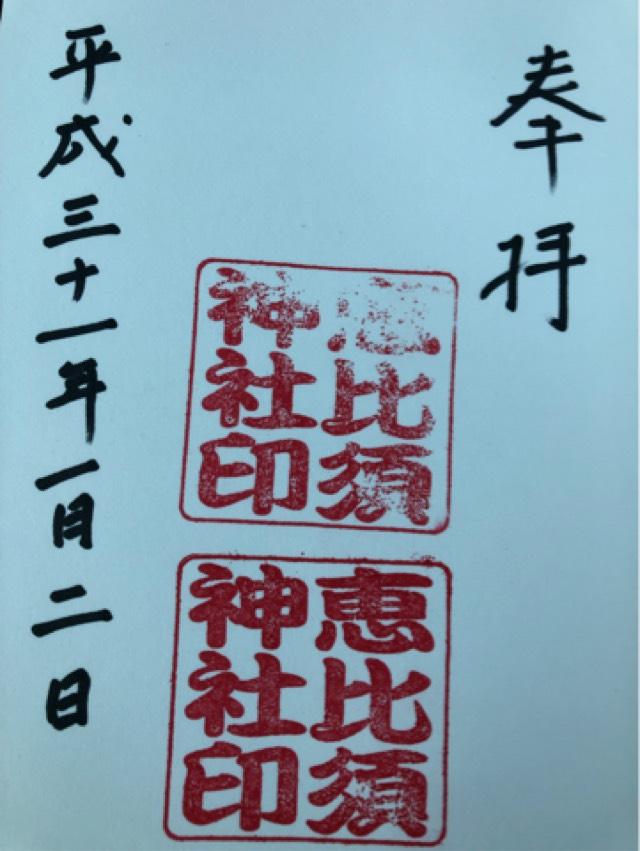 奉拝
恵比須
神社印
恵比須
神社印
平成三十一年一月二日